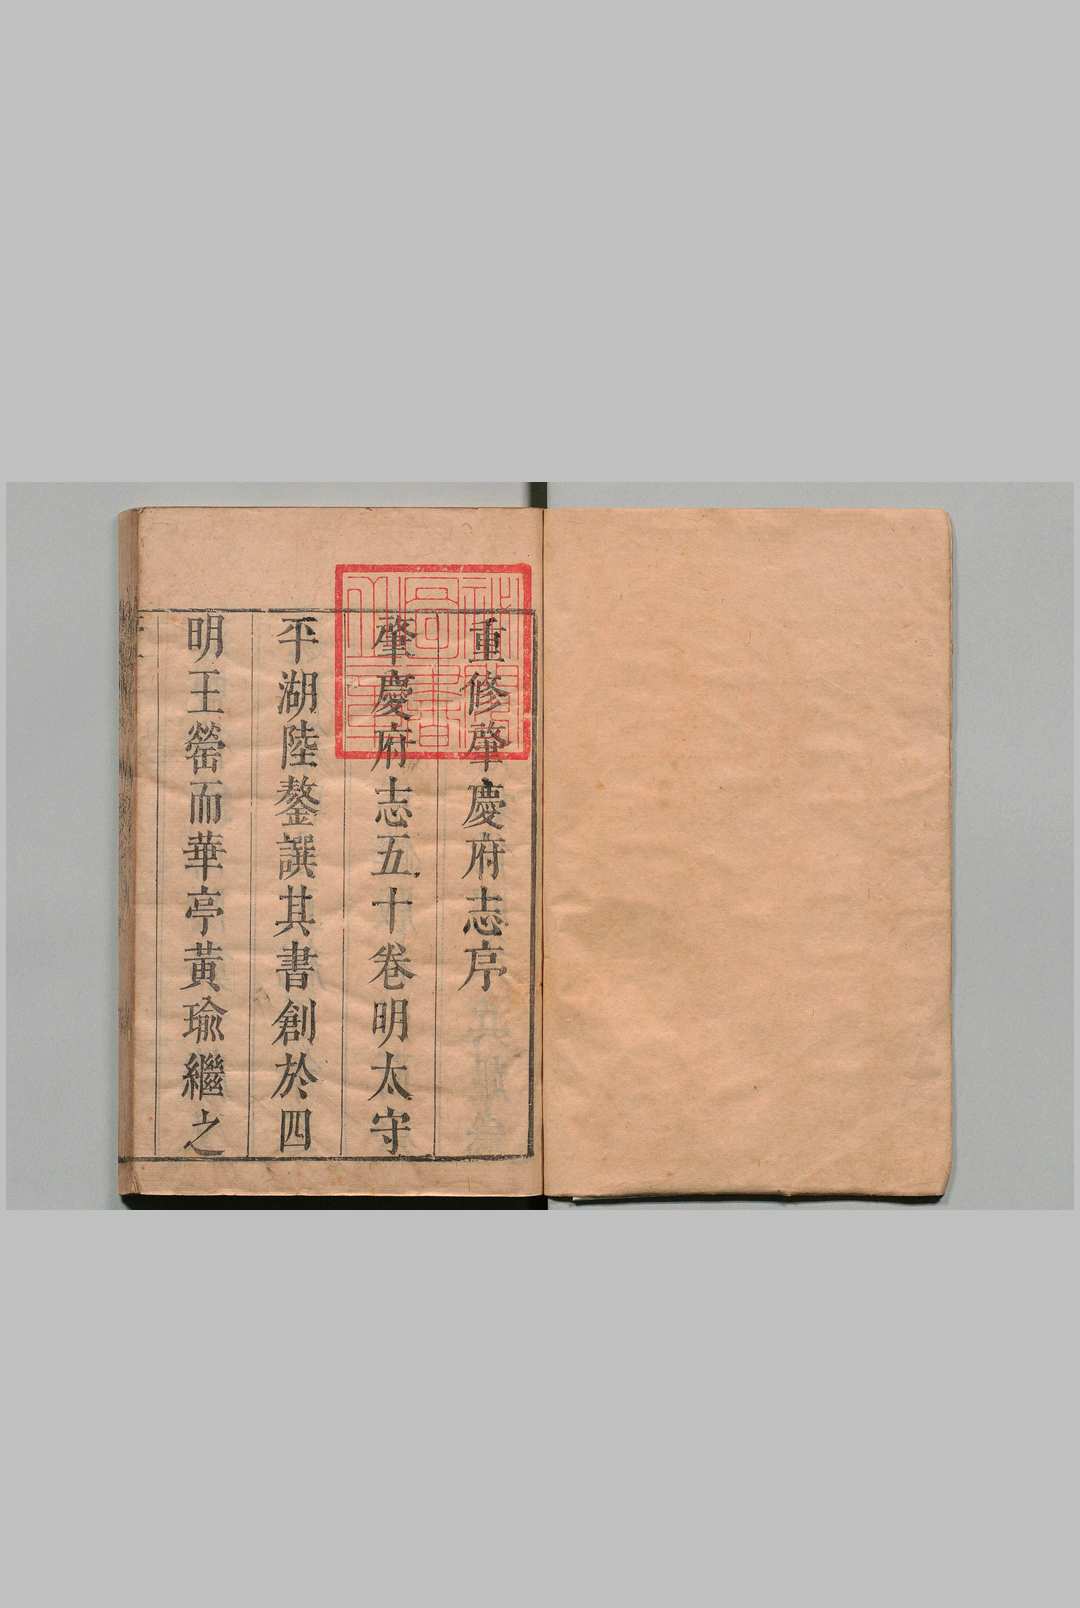 重修肇慶府志序
肇慶府志五十卷明太守
平湖陸鏊譔其書創於四
明王罃而華亭黃瑜繼之